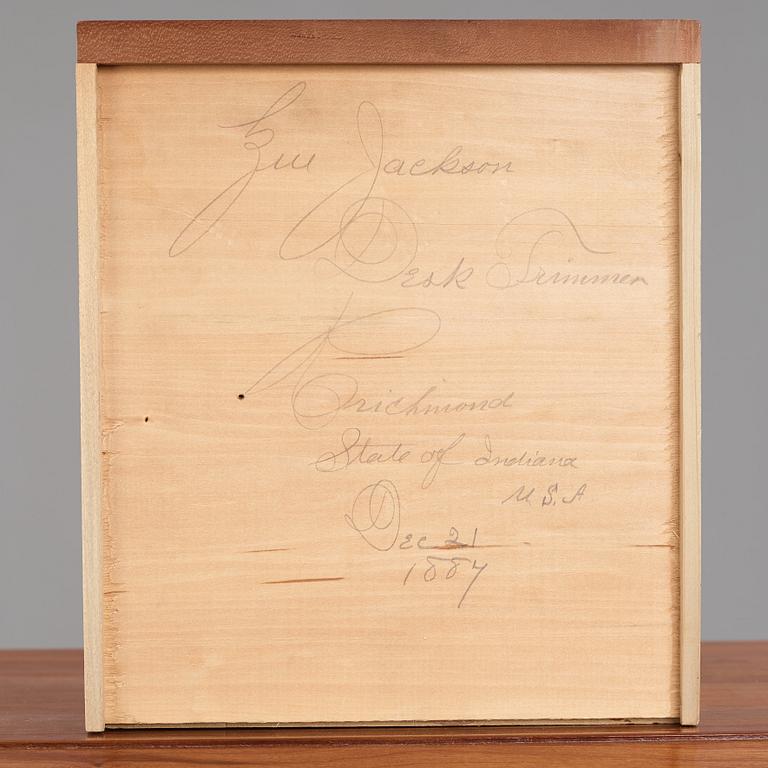 Jackson
Desk Trimmer
Richmond
State of Indiana
U.S.A
Dec 21
1887